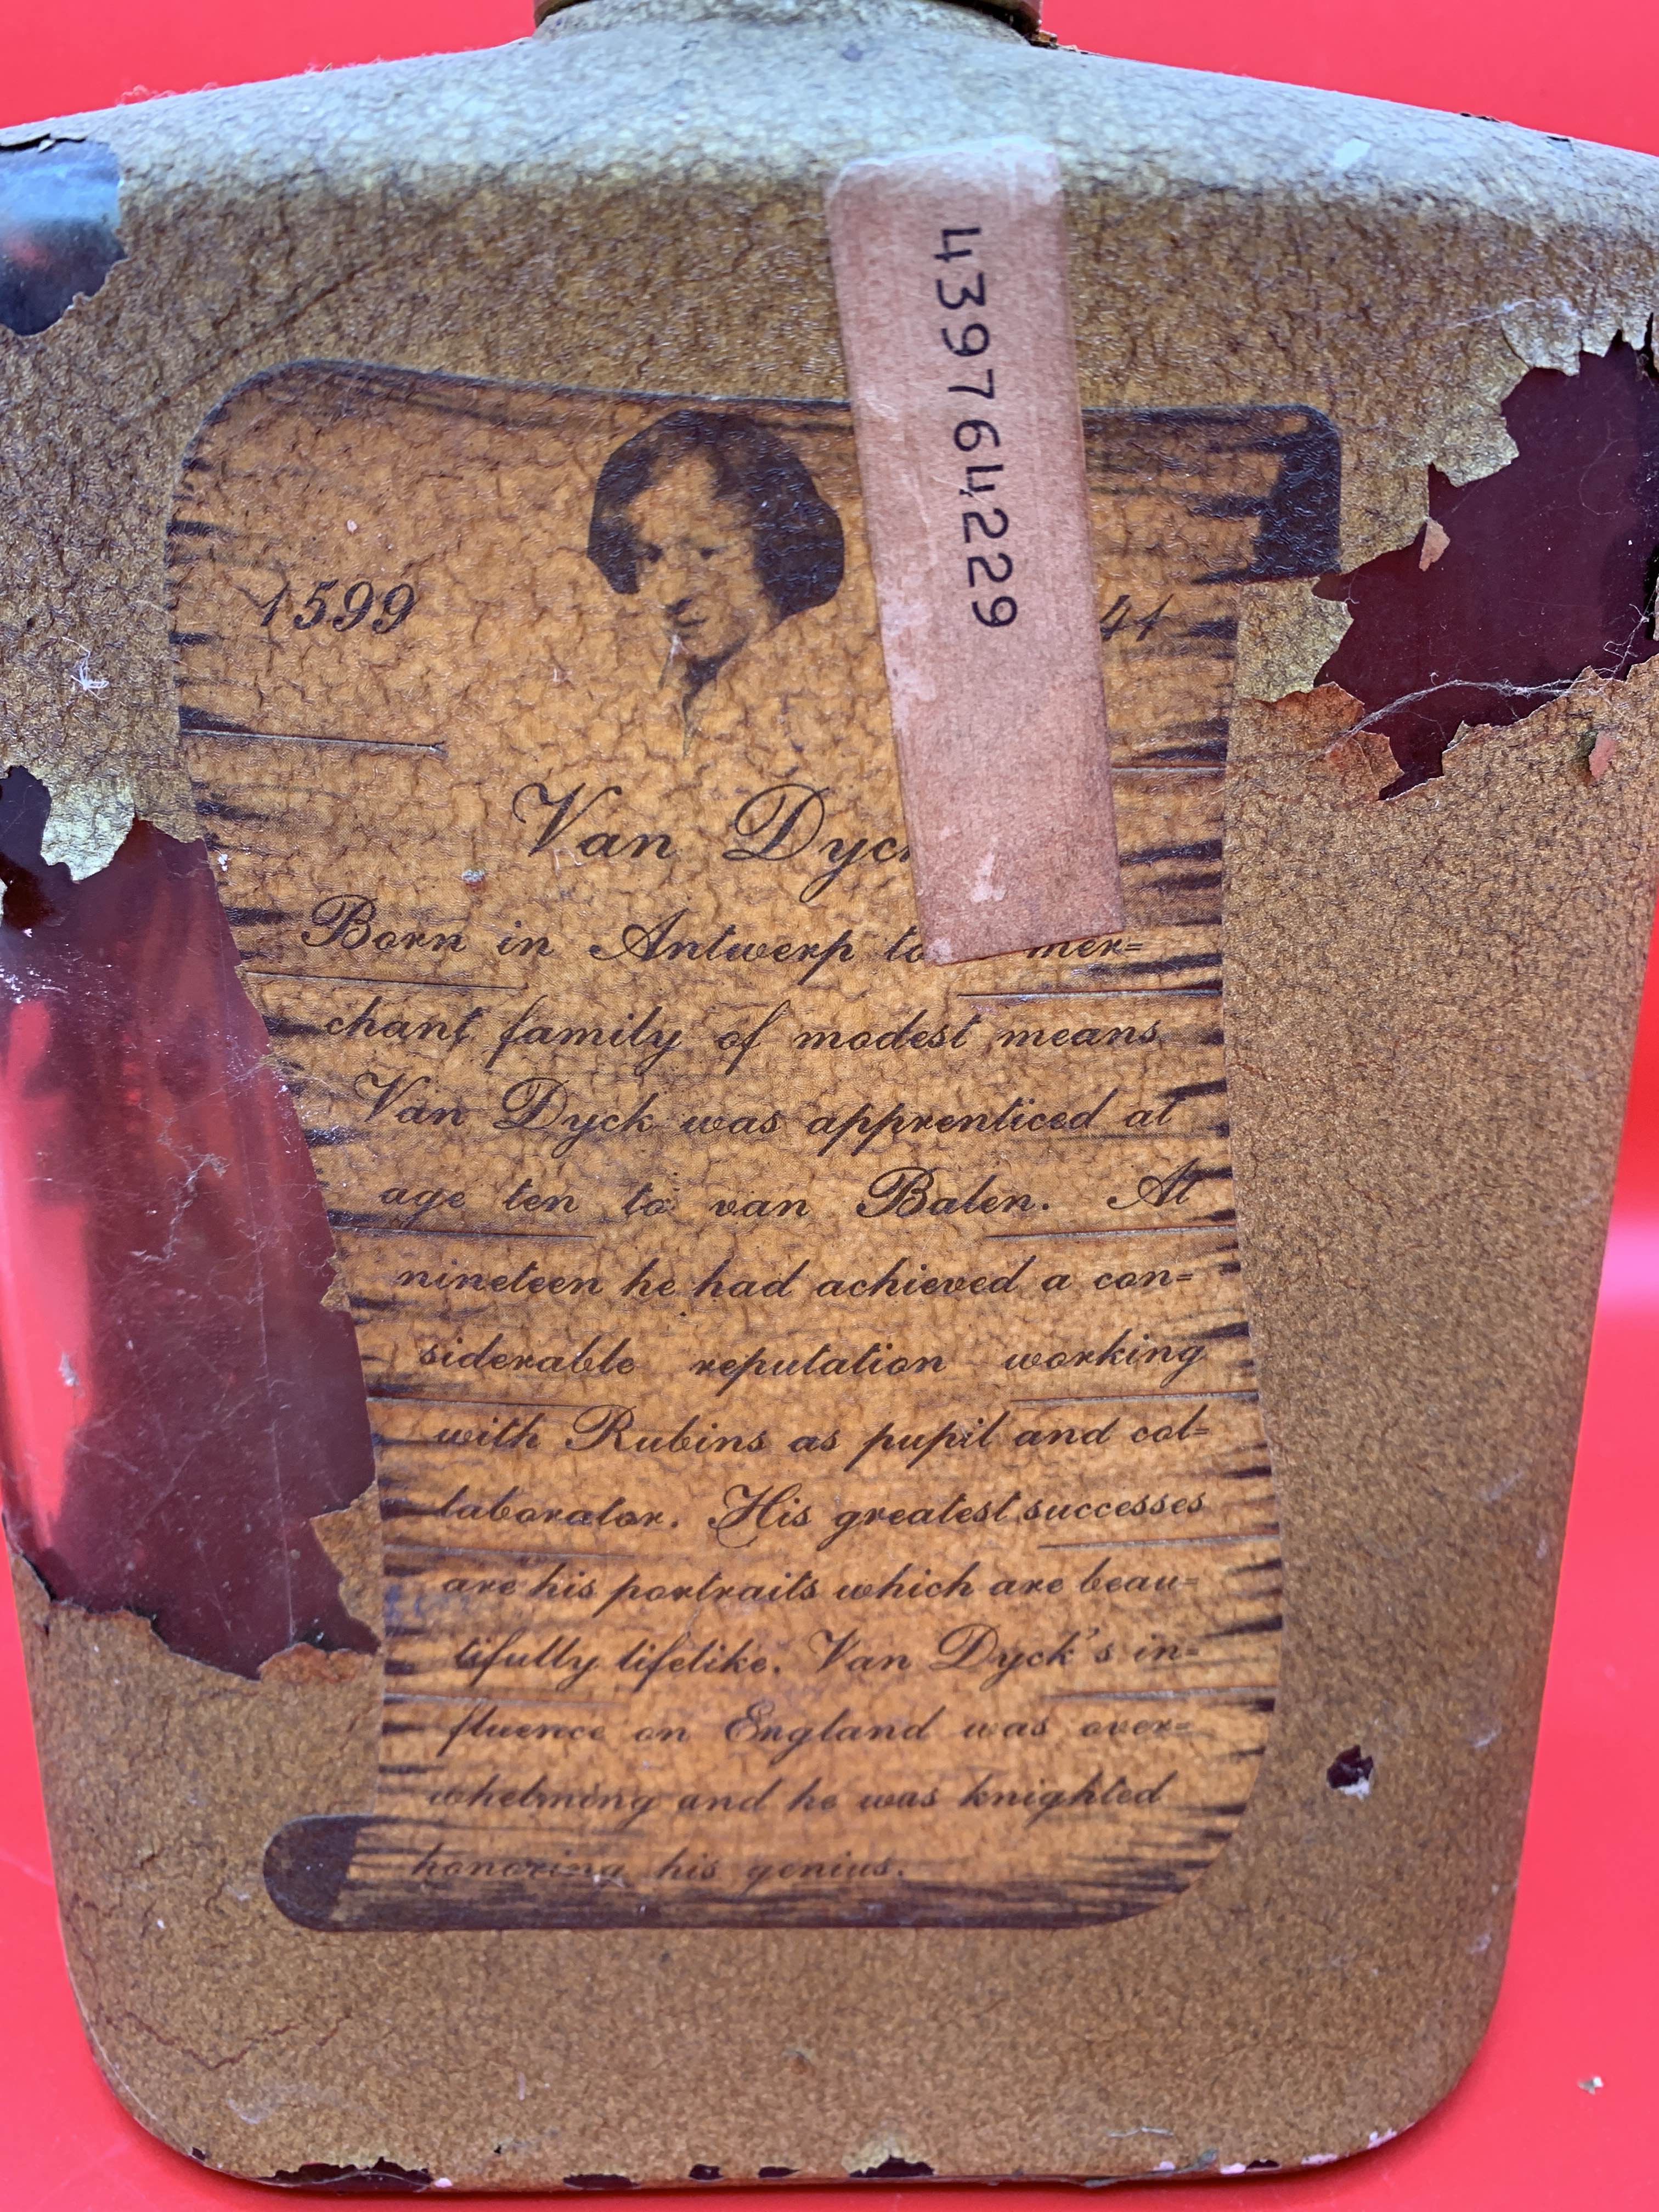 439764229
1599 41
Van Dyc
Born in Antwerp to mer=
chant family of modest means.
Van Dyck was apprenticed at
age ten to van Balen. At
nineteen he had achieved a con=
siderable reputation working
with Rubins as pupil and col=
laborator. His greatest successes
are his portraits which are beau=
tifully lifelike. Van Dyck's in=
fluence on England was over=
whelming and he was knighted
honoring his genius.